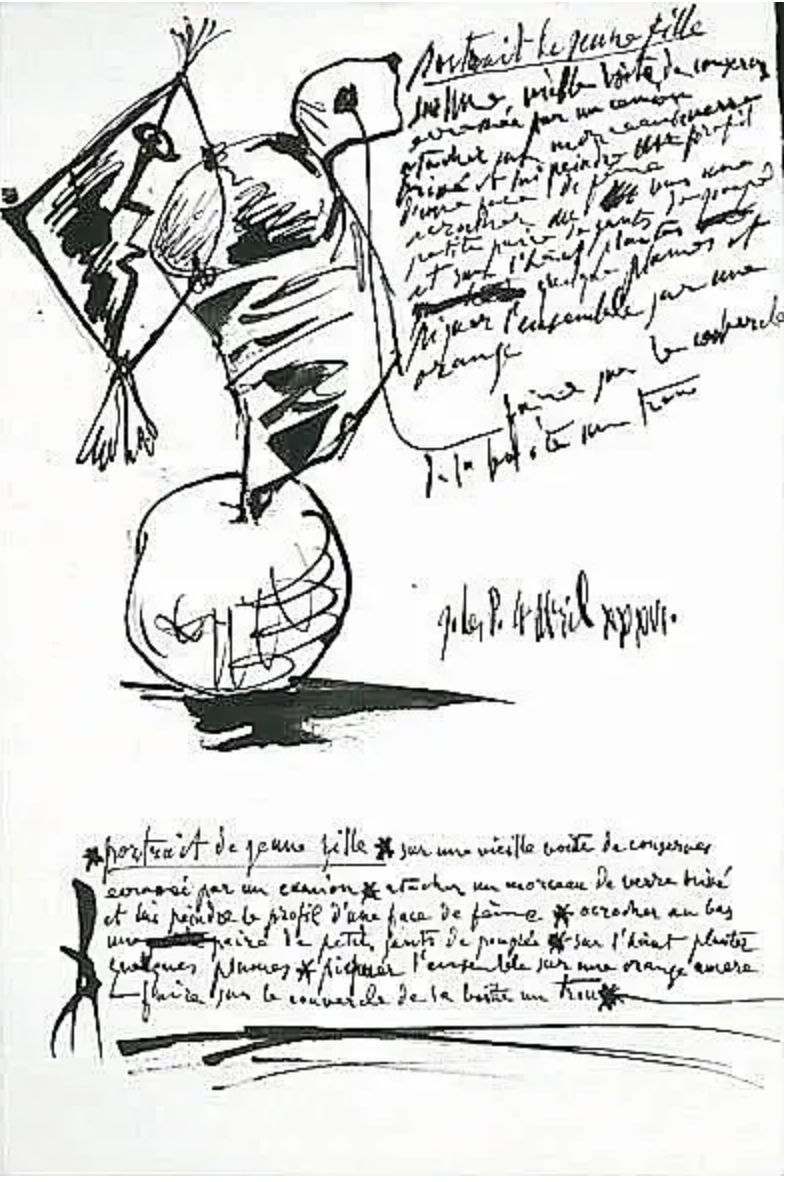 portrait de jeune fille
sur une vieille boite de conserves
ecrasée par un camion
atacher un morceau verre
brisé et lui peindre profil
d'une face de fame
acrocher une
petite paire de gants de poupée
et sur l'haut plantés
quelques plumes et
piquer l'ensemble sur une
orange
faire sur le couvercle
de la boite un trou
avril XXXVI.
*portrait de jeune fille * sur une vieille boite de conserves
ecrasée par un camion * atacher un morceau de verre brisé
et lui peindre le profil d'une face de fame * acrocher au bas
une paire de petits gants de poupée * sur l'haut planter
quelques plumes * piquer l'ensemble sur une orange amere
faire sur le couvercle de la boite un trou *